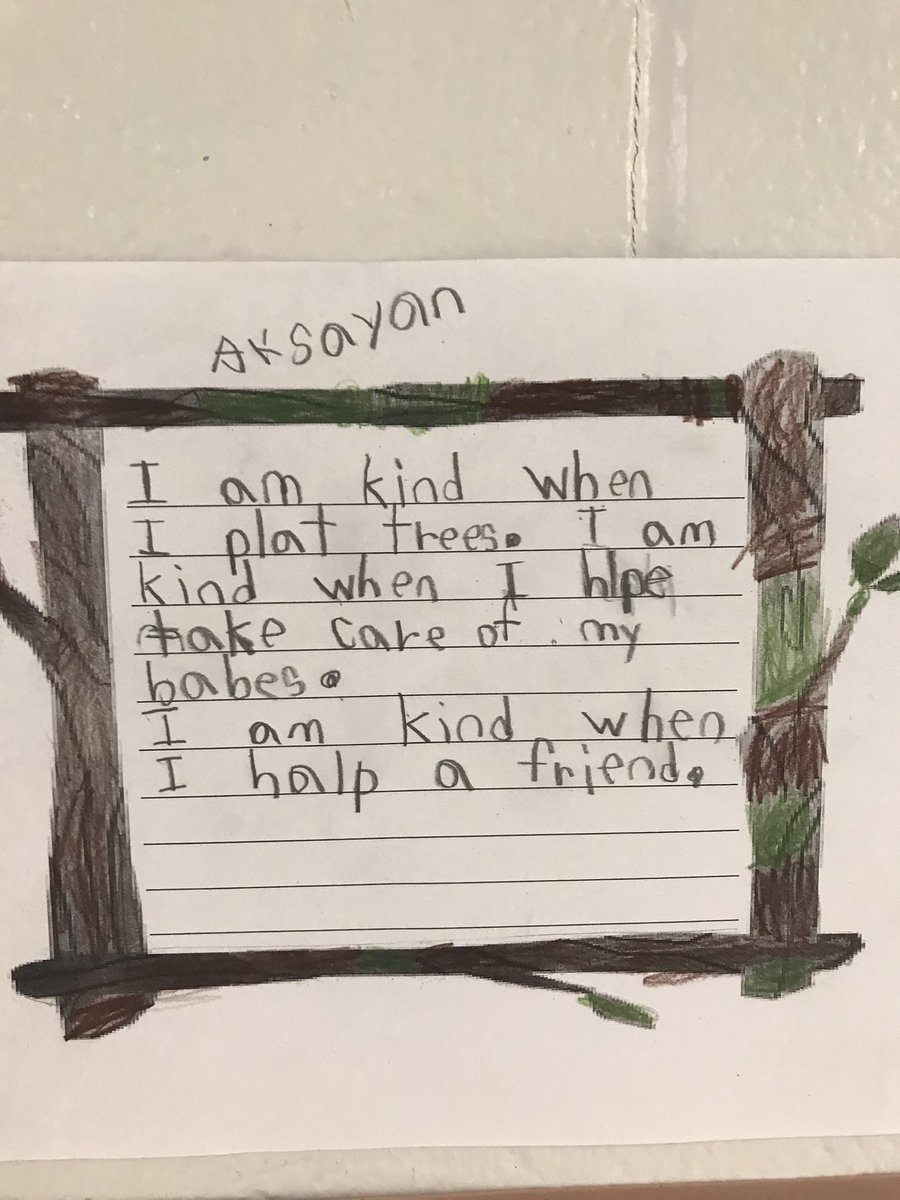 AKsayan
I am kind when
I plat trees. I am
kind when I hlpe
take care of my
babes.
I am kind when
I halp a friend.